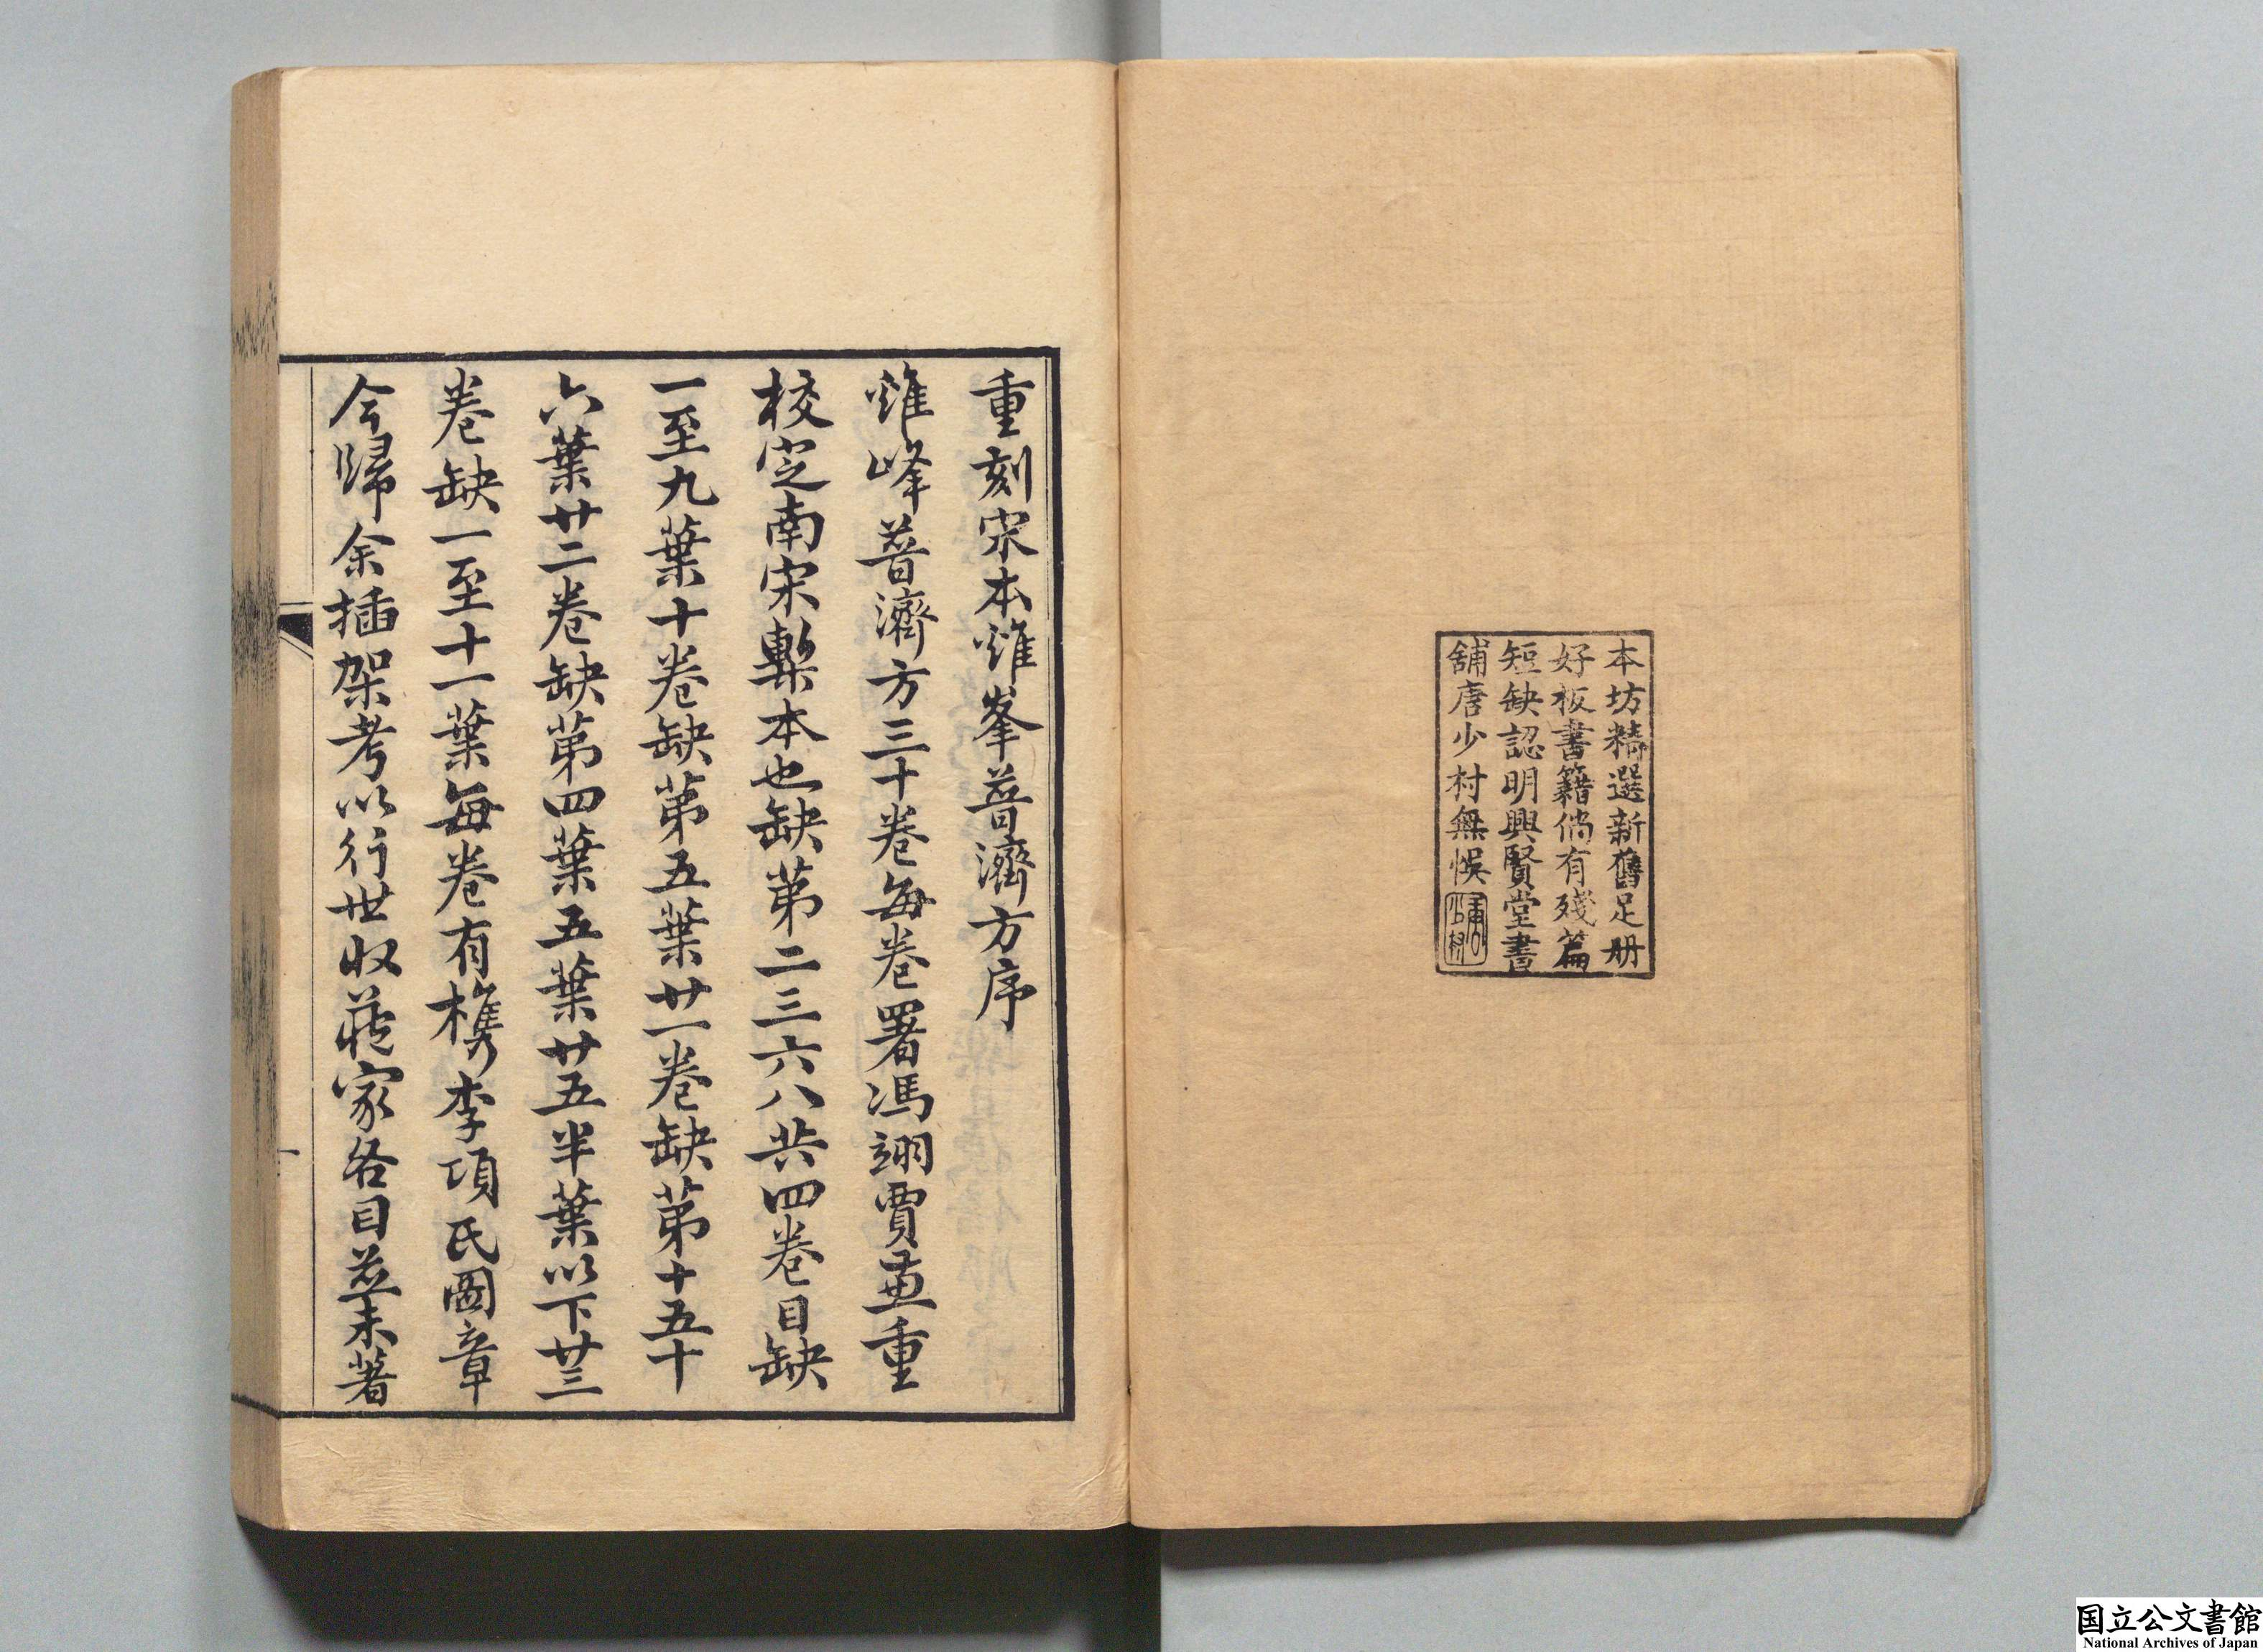 本坊精選新舊足册
好板書籍倘有殘篇
短缺認明興賢堂書
舖唐少村無悞
重刻宋本雞峯普濟方序
雞峰普濟方三十卷每卷署馮翊賈兼重
校定南宋槧本也缺第二三六八共四卷目缺
一至九葉十卷缺第五葉廿一卷缺第十五十
六葉廿二卷缺第四葉五葉廿五半葉以下廿三
卷缺一至十一葉每卷有檇李項氏圖章
今歸余插架考以行世收藏家各目並未著
国立公文書館
National Archives of Japan